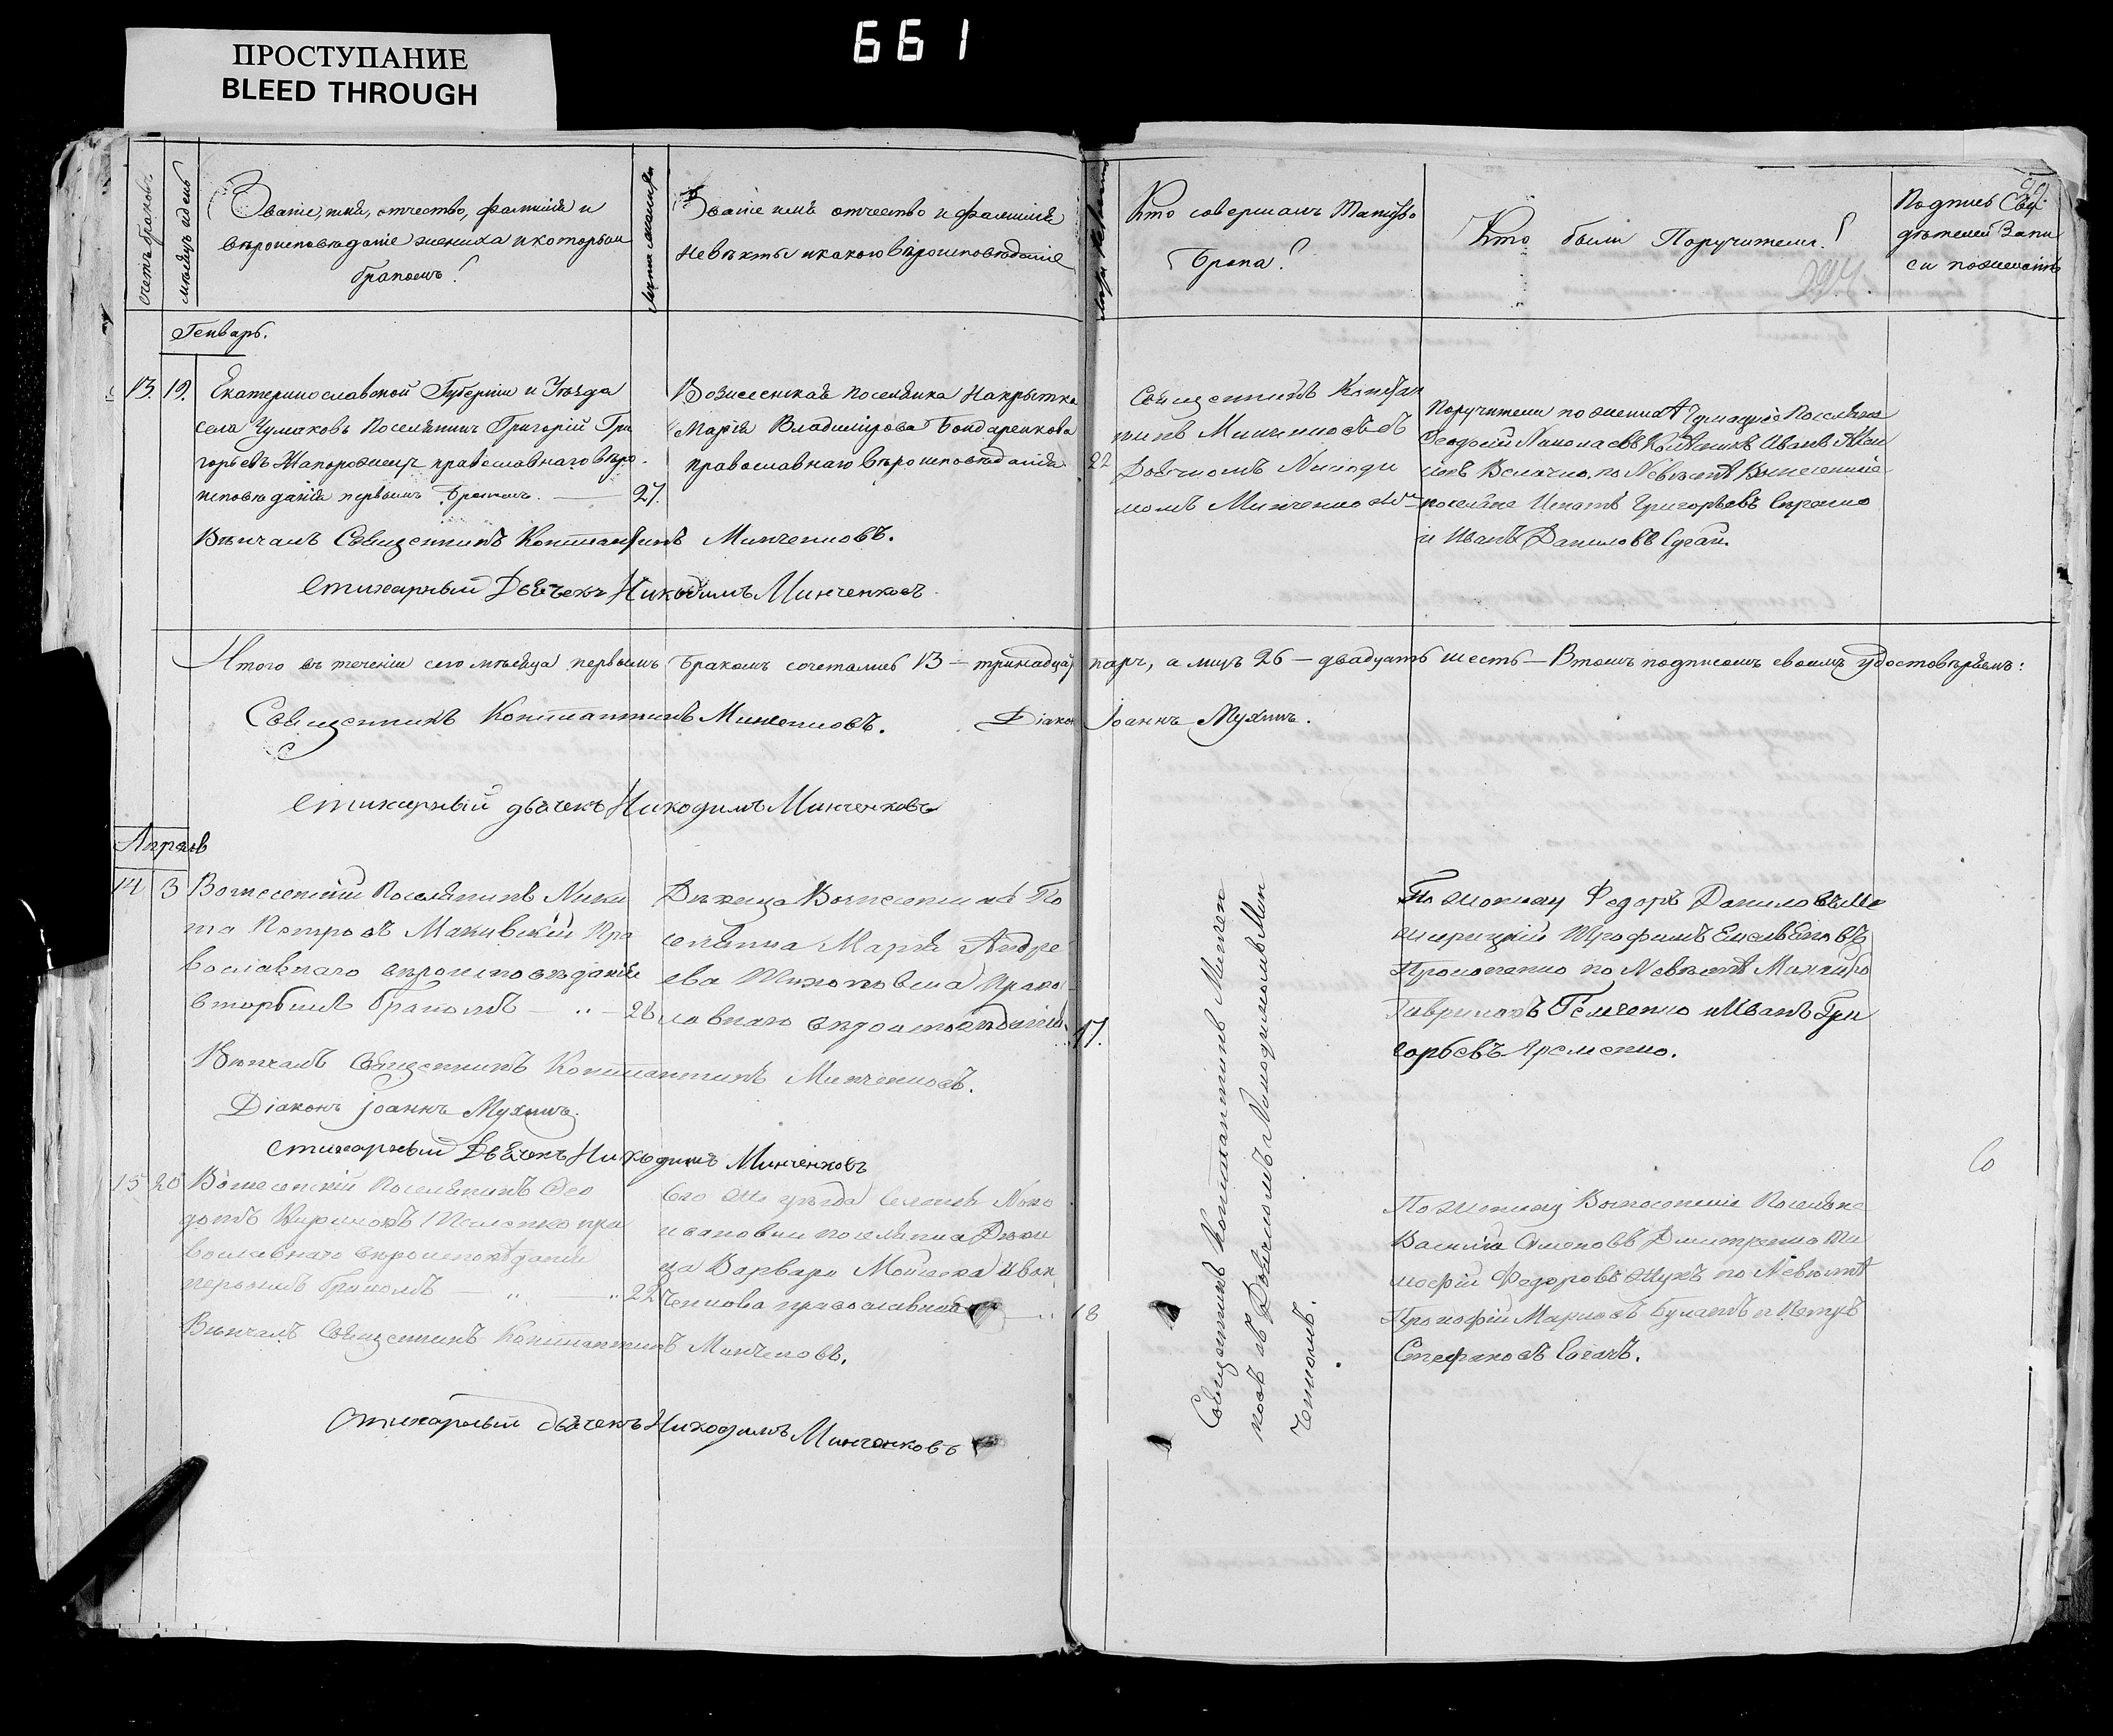 661
ПРОСТУПАНИЕ
BLEED THROUGH
счетъ браковъ.
мѣсяцъ и день
Званіе, имя, отчество, фамилія и
вѣроисповѣданіе жениха и которымъ
бракомъ?
лѣта жениха
Званіе имя отчество и фамилія
Невѣсты и какого вѣроисповѣданія
лѣта невѣсты
Кто совершалъ Таинство
Брака?
Кто были Поручители?
Подпись Сви
дѣтелей Запи
си по желанію
Генварь.
13. 19.
Екатеринославской Губерніи и Уѣзда
села Чумаковъ Поселянинъ Григорій Гри
горьевъ Запорожецъ православнаго вѣро
исповѣданія первымъ бракомъ. — 27.
Вознесенская поселянка
Марія Владимірова Бондаренкова
православнаго вѣроисповѣданія
22
Священникъ Констан
тинъ Минченковъ съ
Дьячкомъ Никоди
момъ Минченковымъ
Поручители по женихѣ
Иванъ
по Невѣстѣ Вознесенскіе
поселяне Игнатъ Григорьевъ
и Иванъ Даниловъ
Вѣнчалъ Священникъ Константинъ Минченковъ.
Стихарный Дьячекъ Никодимъ Минченковъ
Итого въ теченіи сего мѣсяца первымъ бракомъ сочеталось 13 — тринадцать паръ, а лицъ 26 — двадцать шесть — В томъ подписомъ своимъ удостовѣряемъ:
Священникъ Константинъ Минченковъ. Діаконъ Іоаннъ Мухинъ.
Стихарный дьячекъ Никодимъ Минченковъ
Апрель
14 3
Вознесенскій Поселянинъ Ники
та Петровъ Макивскій Пра
вославнаго вѣроисповѣданія
вторымъ бракомъ — „ — 28
Дѣвица Вознесенская По
селянка Марія Андре
ева Тихоновска Право
славнаго вѣроисповѣданія
17.
Священникъ Константинъ Минчен
ковъ съ Дьячкомъ Никодимомъ Мин
ченкомъ.
По жениху Федоръ Даниловъ
Трофимъ Емельяновъ
Прокопенко по Невѣстѣ Михайло
Гавриловъ Гемченко и Иванъ Гри
горьевъ Яременко.
Вѣнчалъ Священникъ Константинъ Минченковъ.
Діаконъ Іоаннъ Мухинъ.
Стихарный Дьячекъ Никодимъ Минченковъ
15 20
Вознесенскій Поселянинъ Фео
дотъ Кириловъ пра
вославнаго вѣроисповѣданія
первымъ бракомъ — „ — „ 22
Его же уѣзда Селенія Ново
ивановки поселянка Дѣви
ца Варвара Мойсеева Ивон
ченкова православнаго
18
По жениху Вознесенскіе Поселяне
Василій Семеновъ Дмитренко Ти
мофій Федоровъ Жукъ по Невѣстѣ
Прокофій Марковъ Булатъ и Петръ
Стефановъ Согачъ.
Вѣнчалъ Священникъ Константинъ Минченковъ.
Стихарный дьячекъ Никодимъ Минченковъ